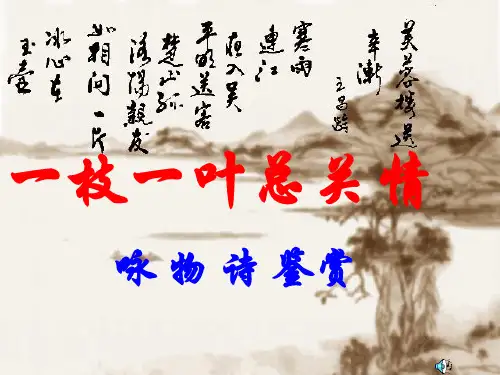 芙蓉樓送
辛漸
王昌齡
寒雨
連江
夜入吴
平明送客
楚山孤
洛陽親友
如相问一片
冰心在
玉壺
一枝一叶总关情
咏物诗鉴赏